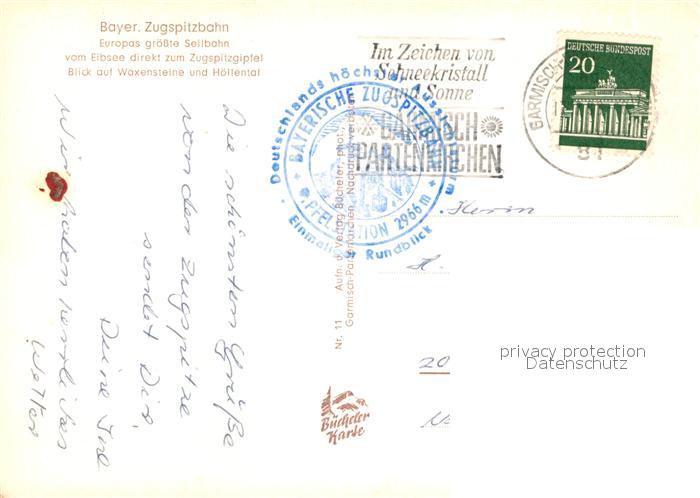 Bayer. Zugspitzbahn
Europas größte Seilbahn
vom Eibsee direkt zum Zugspitzgipfel
Blick auf Waxensteine und Höllental
Im Zeichen von
Schneekristall
und Sonne
GARMISCH
PARTENKIRCHEN
DEUTSCHE BUNDESPOST
20
GARMISCH-
81
Deutschlands höchster Aussichtsturm
BAYERISCHE ZUGSPITZBAHN
GIPFELSTATION 2966 m
Einmaliger Rundblick
Die schönsten Grüße
von der Zugspitze
sendet Dir,
Deine
Wir haben herrliches
Wetter
Nr. 11 Aufn. u. Verlag Bücheler, phot.,
Garmisch-Partenkirchen Nachdruck verboten
Herrn
H.
20
Bücheler
Karte
privacy protection
Datenschutz